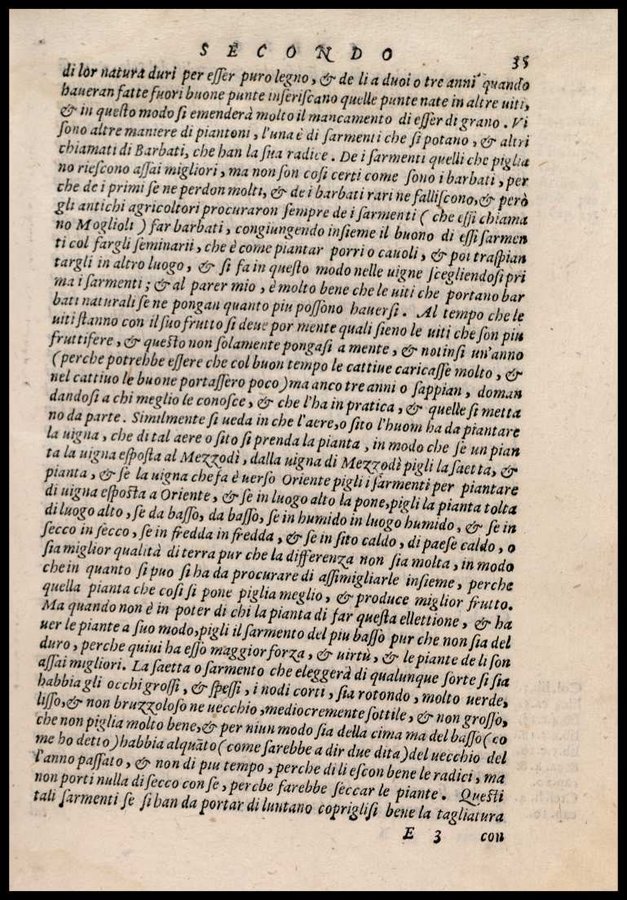 SECONDO 35
di lor natura duri per esser puro legno, & de li a duoi o tre anni quando
haueran fatte fuori buone punte inseriscano quelle punte nate in altre uiti,
& in questo modo si emenderà molto il mancamento di esser di grano. Vi
sono altre maniere di piantoni, l'una è di sarmenti che si potano, & altri
chiamati di Barbati, che han la sua radice. De i sarmenti quelli che piglia
no riescono assai migliori, ma non son cosi certi come sono i barbati, per
che de i primi se ne perdon molti, & de i barbati rari ne falliscono, & però
gli antichi agricoltori procuraron sempre de i sarmenti (che essi chiama
no Moglioli) far barbati, congiungendo insieme il buono di essi sarmen
ti col fargli seminarii, che è come piantar porri o cauoli, & poi traspian
targli in altro luogo, & si fa in questo modo nelle uigne scegliendosi pri
ma i sarmenti; & al parer mio, è molto bene che le uiti che portano bar
bati naturali se ne pongan quanto piu possono hauersi. Al tempo che le
uiti stanno con il suo frutto si deue por mente quali sieno le uiti che son piu
fruttifere, & questo non solamente pongasi a mente, & notinsi un'anno
(perche potrebbe essere che col buon tempo le cattiue caricasse molto, &
nel cattiuo le buone portassero poco) ma anco tre anni o sappian, doman
dandosi a chi meglio le conosce, & che l'ha in pratica, & quelle si metta
no da parte. Similmente si ueda in che l'aere, o sito l'huom ha da piantare
la uigna, che di tal aere o sito si prenda la pianta, in modo che se un pian
ta la uigna esposta al Mezzodì, dalla uigna di Mezzodì pigli la saetta, &
pianta, & se la uigna che fa è uerso Oriente pigli i sarmenti per piantare
di uigna esposta a Oriente, & se in luogo alto la pone, pigli la pianta tolta
di luogo alto, se da basso, da basso, se in humido in luogo humido, & se in
secco in secco, se in fredda in fredda, & se in sito caldo, di paese caldo, o
sia miglior qualità di terra pur che la differenza non sia molta, in modo
che in quanto si puo si ha da procurare di assimigliarle insieme, perche
quella pianta che cosi si pone piglia meglio, & produce miglior frutto.
Ma quando non è in poter di chi la pianta di far questa ellettione, & ha
uer le piante a suo modo, pigli il sarmento del piu basso pur che non sia del
duro, perche quiui ha esso maggior forza, & uirtù, & le piante de li son
assai migliori. La saetta o sarmento che eleggerà di qualunque sorte si sia
habbia gli occhi grossi, & spessi, i nodi corti, sia rotondo, molto uerde,
lisso, & non bruzzoloso ne uecchio, mediocremente sottile, & non grosso,
che non piglia molto bene, & per niun modo sia della cima ma del basso (co
me ho detto) habbia alquāto (come sarebbe a dir due dita) del uecchio del
l'anno passato, & non di piu tempo, perche di li escon bene le radici, ma
non porti nulla di secco con se, perche farebbe seccar le piante. Questi
tali sarmenti se si han da portar di luntano copriglisi bene la tagliatura
E 3 con